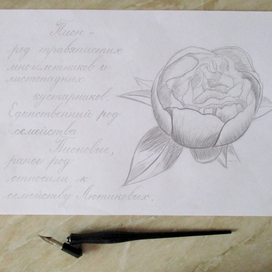 Пион -
род травянистых
многолетников и
листопадных
кустарников.
Единственный род
семейства
Пионовые,
ранее род
относили к
семейству Лютиковых.